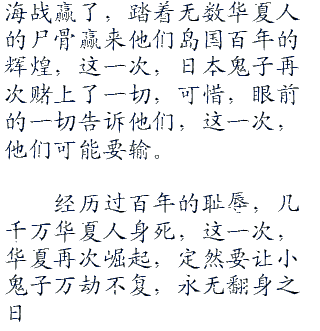 海战赢了，踏着无数华夏人
的尸骨赢来他们岛国百年的
辉煌，这一次，日本鬼子再
次赌上了一切，可惜，眼前
的一切告诉他们，这一次，
他们可能要输。
经历过百年的耻辱，几
千万华夏人身死，这一次，
华夏再次崛起，定然要让小
鬼子万劫不复，永无翻身之
日